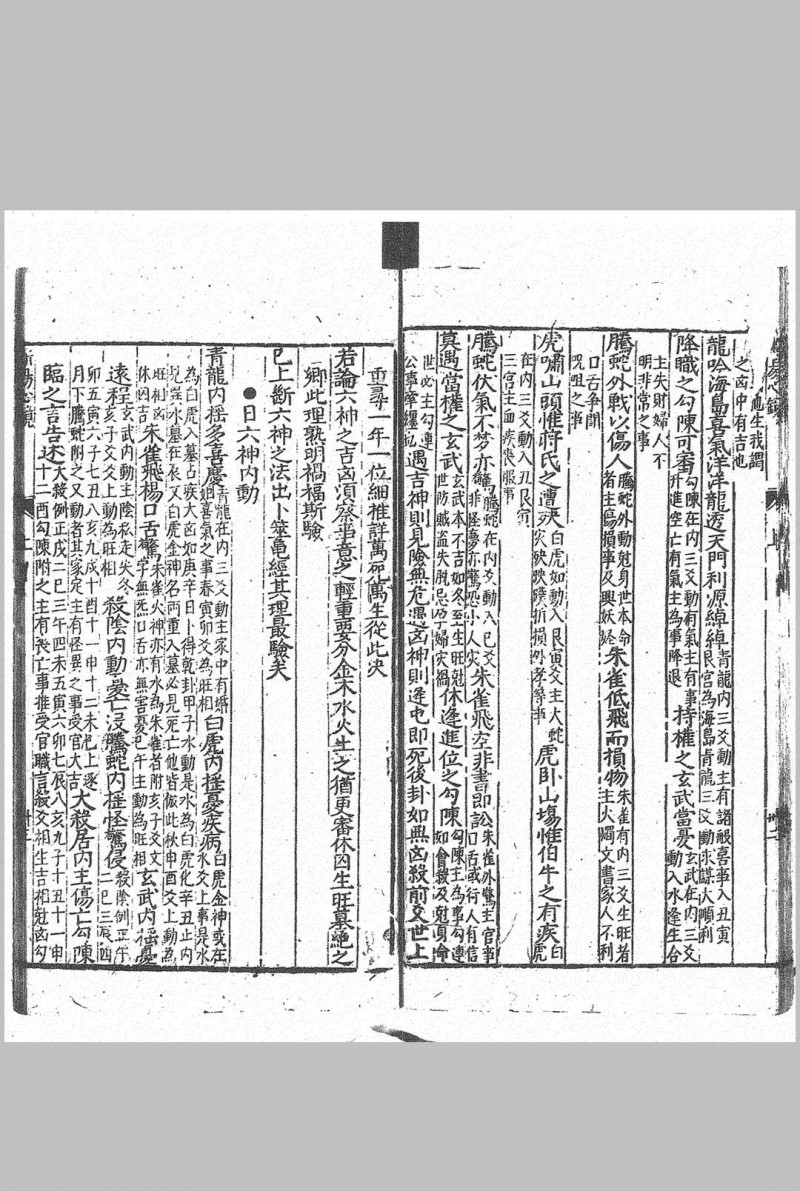 之凶中有吉也
龍吟海島喜氣洋洋龍透天門利源綽綽青龍內三爻動主有諸般喜事入丑寅艮宮為海島青龍三爻動求謀大順利
降職之勾陳可審勾陳在內三爻動有氣主有事升進空亡有氣主為事降退持權之玄武當憂玄武在內三爻動入水逢生合
主失財婦人不明非常之事
騰蛇外戰以傷人騰蛇外動尅身世本命者主傷損事及興妖恠朱雀低飛而損物朱雀有內三爻生旺者主火燭文書家人不利
口舌爭鬭咒咀之事
虎嘯山頭惟蔣氏之遭灾白虎如動入艮寅爻主大蛇虎卧山塲惟伯牛之有疾白虎
在內三爻動入丑艮
三宮主血疾喪服事
騰蛇伏氣不梦亦驚騰蛇在內爻動入巳爻非怪夢亦驚恐小人灾朱雀飛空非書即訟朱雀外驚主官事口舌或行人有信
莫遇當權之玄武玄武本不吉如冬至生旺尅世防賊盜失脫休逢進位之勾陳勾陳主為事勾連
世必主勾連公事牽纏遇吉神則見險無危遇凶神則逢屯即死後卦如無凶殺前爻世上
重尋一年一位細推詳萬死萬生從此决
若論六神之吉凶須察當意之輕重要分金木水火生之猶更審休囚生旺墓絕之
鄉此理熟明禍福斯驗
已上斷六神之法出卜筮亀經其理最驗矣
●日六神內動
青龍內揺多喜慶青龍在內三爻動主家中有婚姻喜氣之事春寅卯爻為旺相白虎內揺憂疾病白虎金神或在水爻上事是水
為白虎入墓占疾大凶如庚辛日卜得乾卦甲子水動是水為白虎化辛丑土內
白虎金神名两重入墓必見死亡他皆倣此秋申酉爻上動為
旺相凶休囚吉朱雀飛楊口舌驚朱雀火神亦有水為朱雀者附亥子爻文字無炁口舌亦無害憂巳午主動為旺相玄武內揺憂
遠程玄武內動主陰私走失冬亥子爻爻上動為旺相殺陰內動憂亡沒騰蛇內揺怪驚侵殺陰例正午二巳三辰
卯五寅六子七丑八亥九戌十酉十一申十二未巳上逐
月下騰蛇附之又動者其家定主有怪異之事受官大吉大殺居內主傷亡勾陳
臨之言告述大殺例正戌二巳三午四未五寅六卯七辰八亥九子十丑十一申十二酉勾陳附之主有丧亡事推受官職言殺爻相生吉相尅凶勾